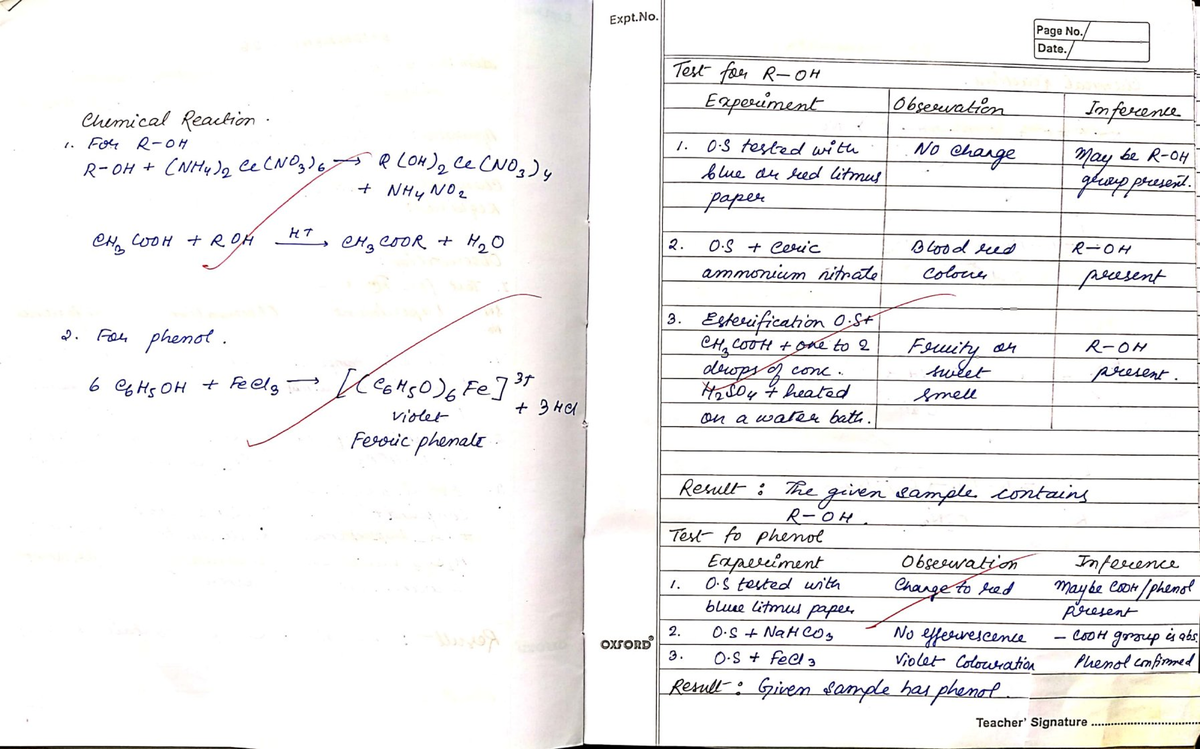 Chemical Reaction.
1. For R-OH
R-OH + (NH4)2 Ce(NO3)6 → R(OH)2 Ce(NO3)4
+ NH4NO2
CH3COOH + ROH HT → CH3COOR + H2O
2. For phenol.
6 C6H5OH + FeCl3 → [(C6H5O)6 Fe]3+
+ 3HCl
violet
Ferric phenate.
Expt.No.
Page No.
Date.
Test for R-OH
Experiment Observation Inference
1. O.S tested with No change May be R-OH
blue or red litmus group present.
paper
2. O.S + Ceric Blood red R-OH
ammonium nitrate colour present
3. Esterification O.S+
CH3COOH + one to 2 Fruity or R-OH
drops of conc. sweet present.
H2SO4 + heated smell
on a water bath.
Result : The given sample contains
R-OH.
Test fo phenol
Experiment Observation Inference
1. O.S tested with Change to red Maybe COOH/phenol
blue litmus paper present
2. O.S + NaHCO3 No effervescence - COOH group is abs
3. O.S + FeCl3 Violet Colouration Phenol confirmed
Result : Given sample has phenol.
OXFORD®
Teacher' Signature ..............................